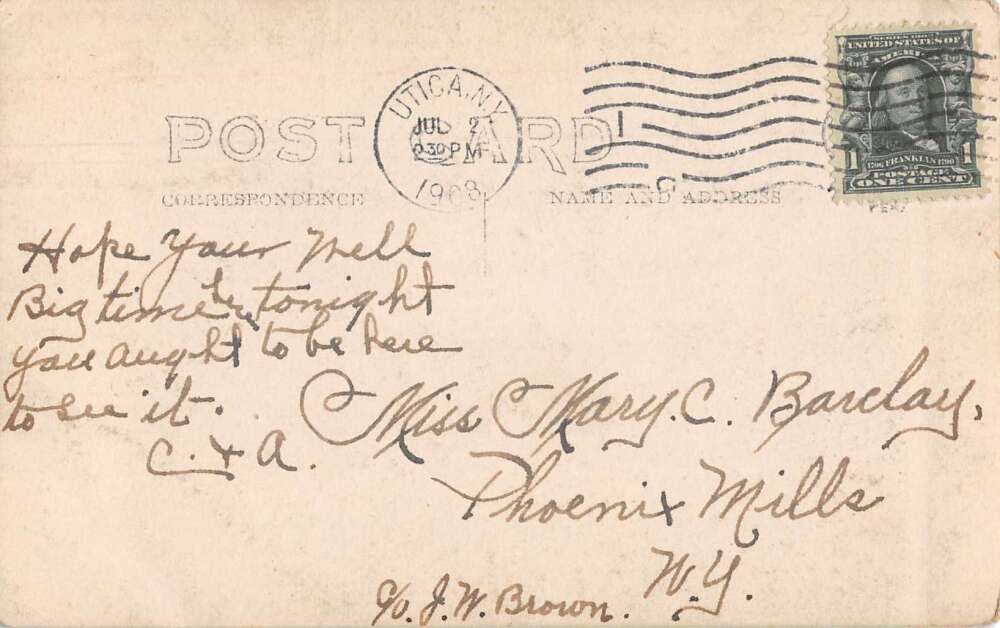 SERIES 1902
UNITED STATES OF
AMERICA
1 1706 FRANKLIN 1790 1
POSTAGE
ONE CENT
UTICA, N.Y.
JUL 2
230 PM
1908
POST CARD
CORRESPONDENCE
NAME AND ADDRESS
Hope your well
Big time tonight
you aught to be here
to see it.
C. & A.
Miss Mary. C. Barclay,
Phoenix Mills
N.Y.
c/o. J. W. Brown.